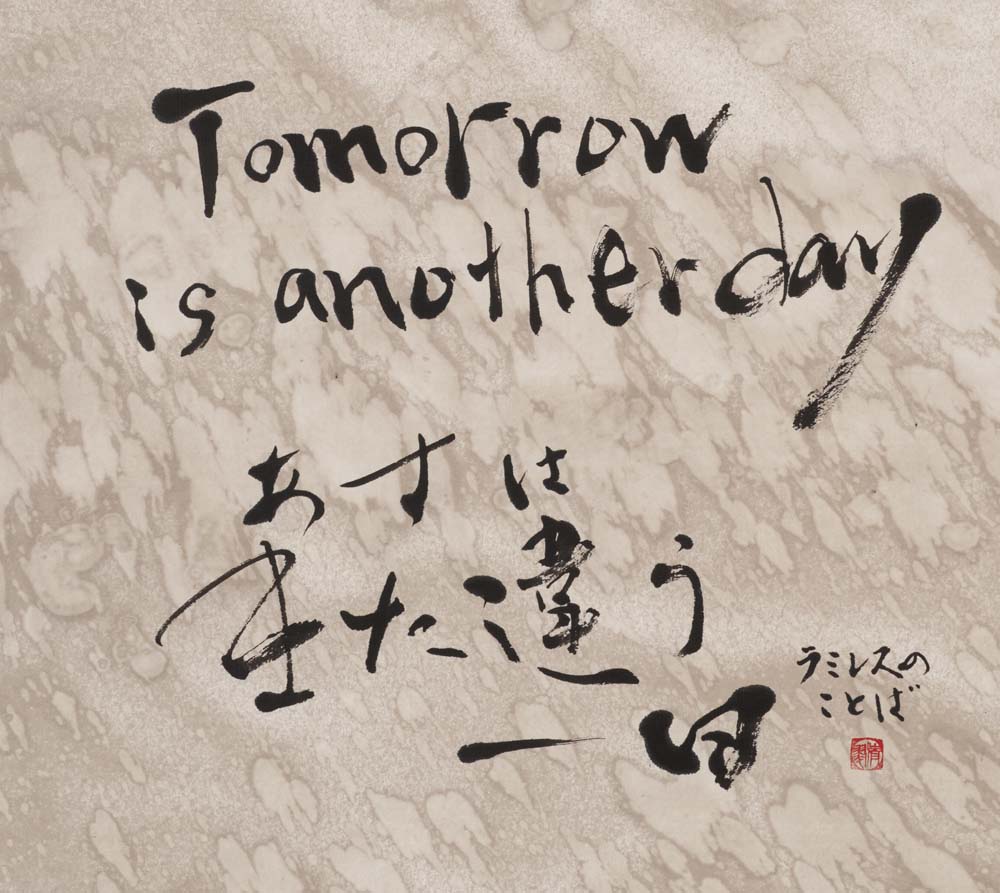 Tomorrow
is another day
あすは
また違う
一日
ラミレスの
ことば